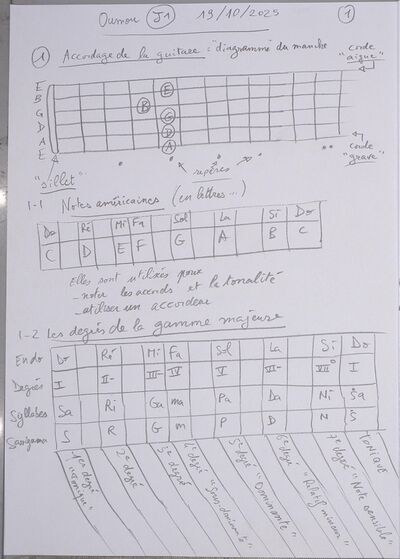 Oumou J1 19/10/2025 1
1 Accordage de la guitare : "diagramme" du manche
corde "aigue"
E
B
G
D
A
E
E
B
G
D
A
"sillet"
repères
corde "grave"
1-1 Notes américaines (en lettres...)
Do Ré Mi Fa Sol La Si Do
C D E F G A B C
Elles sont utilisés pour
- noter les accords et la tonalité
- utiliser un accordeur
1-2 Les degrés de la gamme majeure
Do Ré Mi Fa Sol La Si Do
Degrés I II- III- IV V VI- VII° I
Syllabes Sa Ri Ga ma Pa Da Ni Sa
Sargama S R G m P D N S
1er degré "Tonique"
2e degré
3e degré
4e degré "Sous dominante"
5e degré "Dominante"
6e degré "Relatif mineur"
7e degré "Note sensible"
TONIQUE